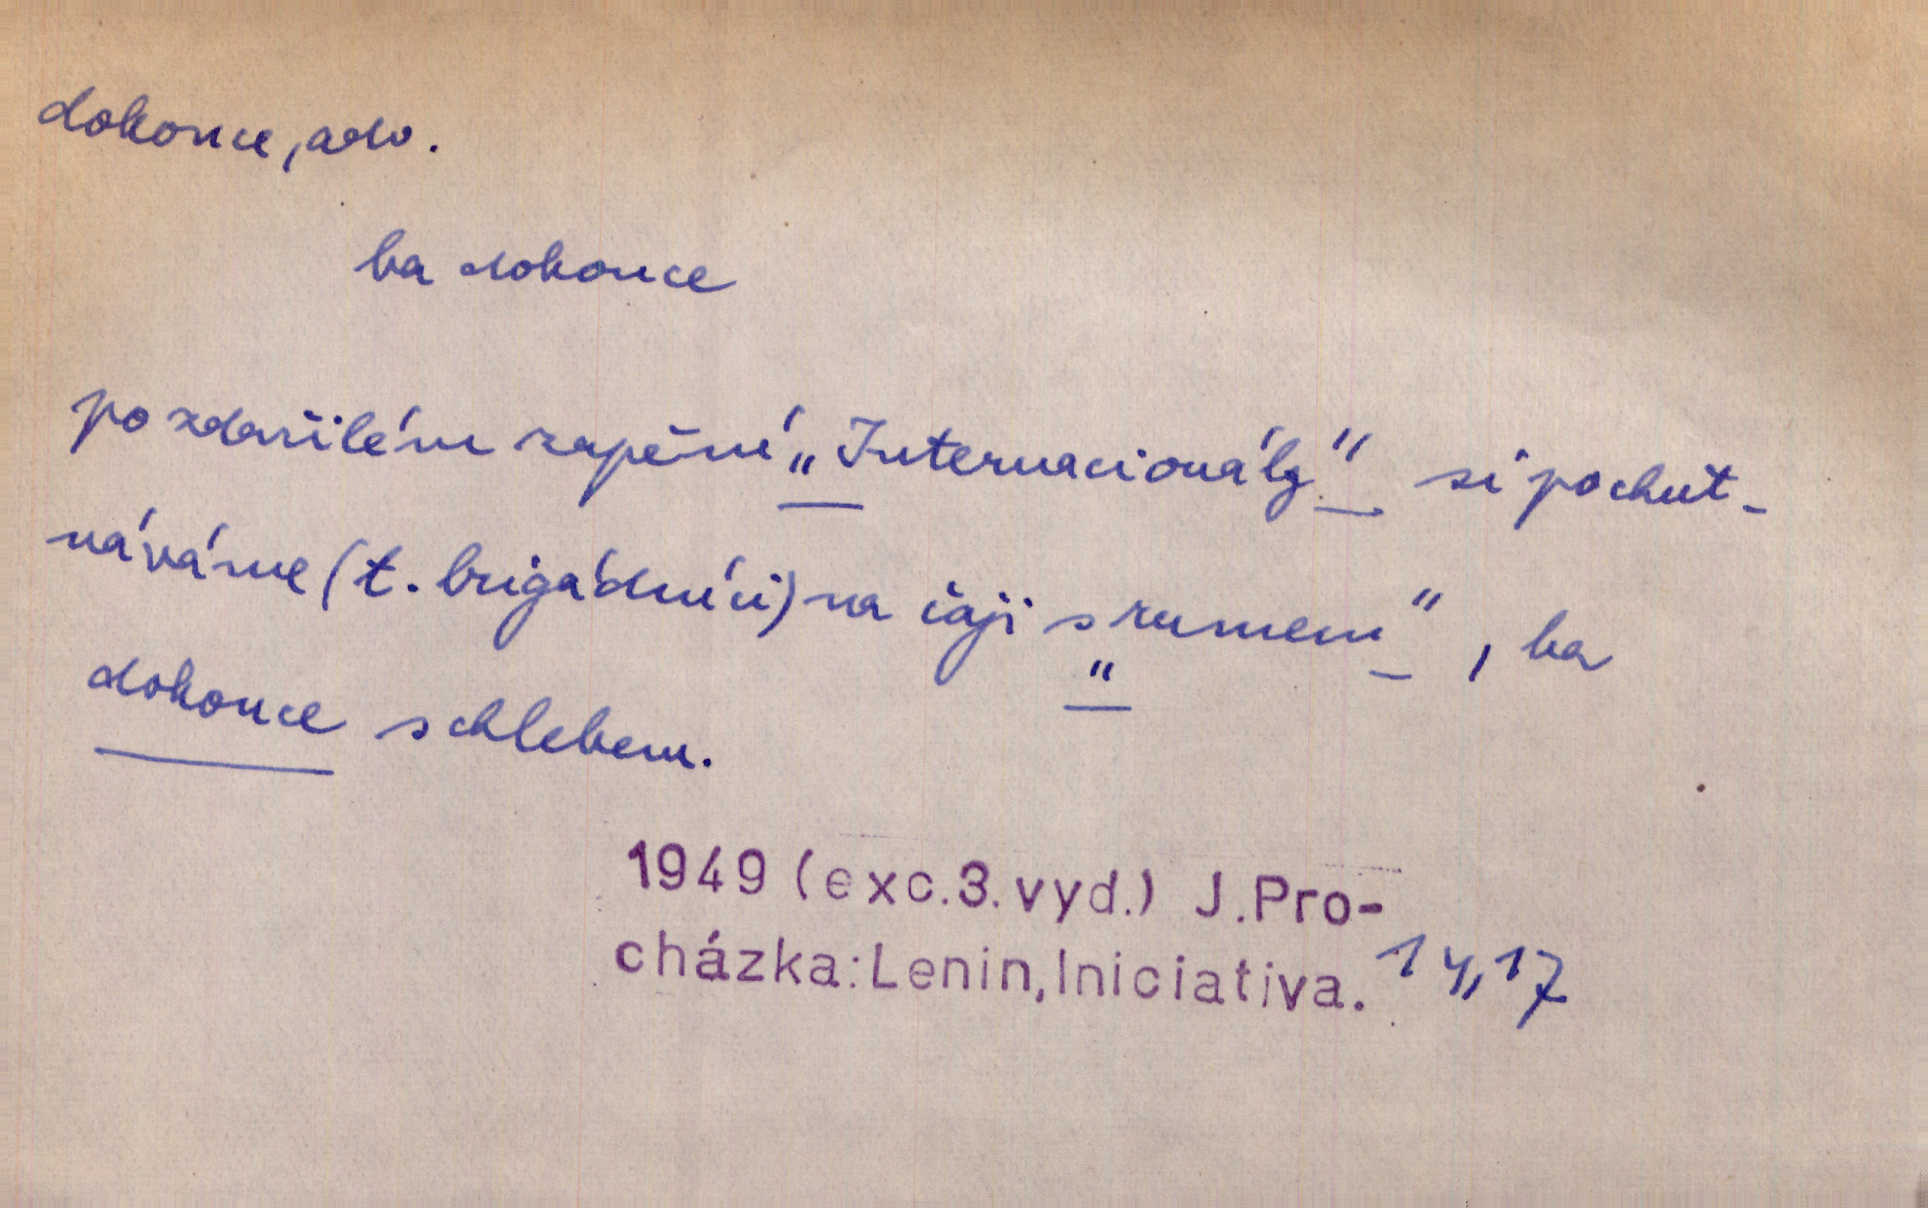 dokonce, adv.
ba dokonce
po zdařilém zapění „Internacionály" si pochut-
náváme (t. brigádníci) na čaji s „rumem", ba
dokonce s chlebem.
1949 (exc.3.vyd.) J.Pro-
cházka:Lenin,Iniciativa. 14,17